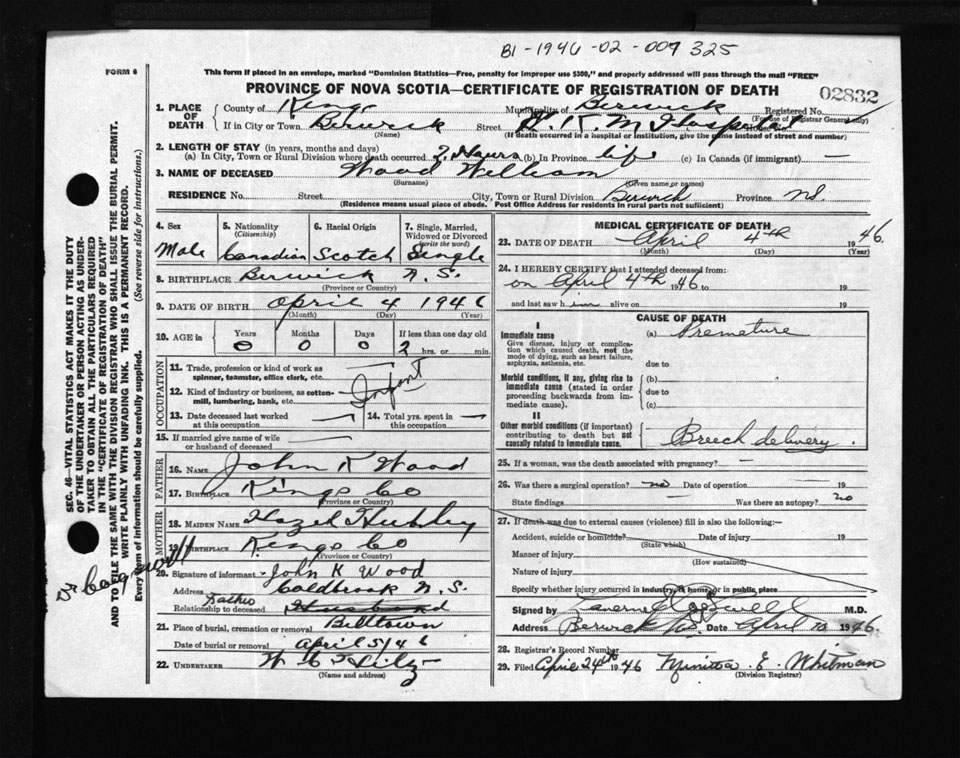 B1-1946-02-009 325
FORM 6
This form if placed in an envelope, marked "Dominion Statistics—Free, penalty for improper use $300," and properly addressed will pass through the mail "FREE"
PROVINCE OF NOVA SCOTIA—CERTIFICATE OF REGISTRATION OF DEATH
02832
1. PLACE OF DEATH County of Kings Municipality of Berwick Registered No.
(For use of Registrar General only)
If in City or Town Berwick Street W. K. M Hospital
(Name) (If death occurred in a hospital or institution, give the name instead of street and number)
2. LENGTH OF STAY (in years, months and days)
(a) In City, Town or Rural Division where death occurred 2 Hours (b) In Province life (c) In Canada (if immigrant) —
3. NAME OF DECEASED Wood William
(Surname) (Given name or names)
RESIDENCE No. Street City, Town or Rural Division Berwick Province NS.
(Residence means usual place of abode. Post Office Address for residents in rural parts not sufficient)
4. Sex 5. Nationality (Citizenship) 6. Racial Origin 7. Single, Married, Widowed or Divorced (write the word)
Male Canadian Scotch Single
8. BIRTHPLACE Berwick N.S.
(Province or Country)
9. DATE OF BIRTH April 4 1946
(Month) (Day) (Year)
10. AGE in Years Months Days If less than one day old
0 0 0 2 hrs. or min.
OCCUPATION
11. Trade, profession or kind of work as spinner, teamster, office clerk, etc.
12. Kind of industry or business, as cotton-mill, lumbering, bank, etc.
Infant
13. Date deceased last worked at this occupation — 14. Total yrs. spent in this occupation —
15. If married give name of wife or husband of deceased —
FATHER
16. NAME John K Wood
17. BIRTHPLACE Kings Co
(Province or Country)
MOTHER
18. MAIDEN NAME Hazel
19. BIRTHPLACE Kings Co
(Province or Country)
20. Signature of informant John K Wood
Address Coldbrook N.S.
Relationship to deceased Father Husband
21. Place of burial, cremation or removal Billtown
Date of burial or removal April 5/46
22. UNDERTAKER
(Name and address)
MEDICAL CERTIFICATE OF DEATH
23. DATE OF DEATH April 4th 1946.
(Month) (Day) (Year)
24. I HEREBY CERTIFY that I attended deceased from:
on April 4th 1946 to 19
and last saw h im alive on 19
CAUSE OF DEATH
I
Immediate cause (a) Premature
Give disease, injury or complication which caused death, not the mode of dying, such as heart failure, asphyxia, asthenia, etc.
due to
Morbid conditions, if any, giving rise to immediate cause (stated in order proceeding backwards from immediate cause).
(b)
due to
(c)
II
Other morbid conditions (if important) contributing to death but not causally related to immediate cause.
Breech delivery.
25. If a woman, was the death associated with pregnancy? —
26. Was there a surgical operation? no Date of operation — 19
State findings — Was there an autopsy? no
27. If death was due to external causes (violence) fill in also the following:—
Accident, suicide or homicide? Date of injury 19
(State which)
Manner of injury
(How sustained)
Nature of injury
Specify whether injury occurred in industry, in home, or in public place
Signed by M.D.
Address Berwick NS. Date April 10 1946.
28. Registrar's Record Number
29. Filed April 24th 1946 E. Whitman
(Division Registrar)
SEC. 46—VITAL STATISTICS ACT MAKES IT THE DUTY
OF THE UNDERTAKER OR PERSON ACTING AS UNDER-
TAKER TO OBTAIN ALL THE PARTICULARS REQUIRED
IN THE "CERTIFICATE OF REGISTRATION OF DEATH"
AND TO FILE THE SAME WITH THE DIVISION REGISTRAR WHO SHALL ISSUE THE BURIAL PERMIT.
WRITE PLAINLY WITH UNFADING INK. THIS IS A PERMANENT RECORD.
Every item of information should be carefully supplied. (See reverse side for instructions.)